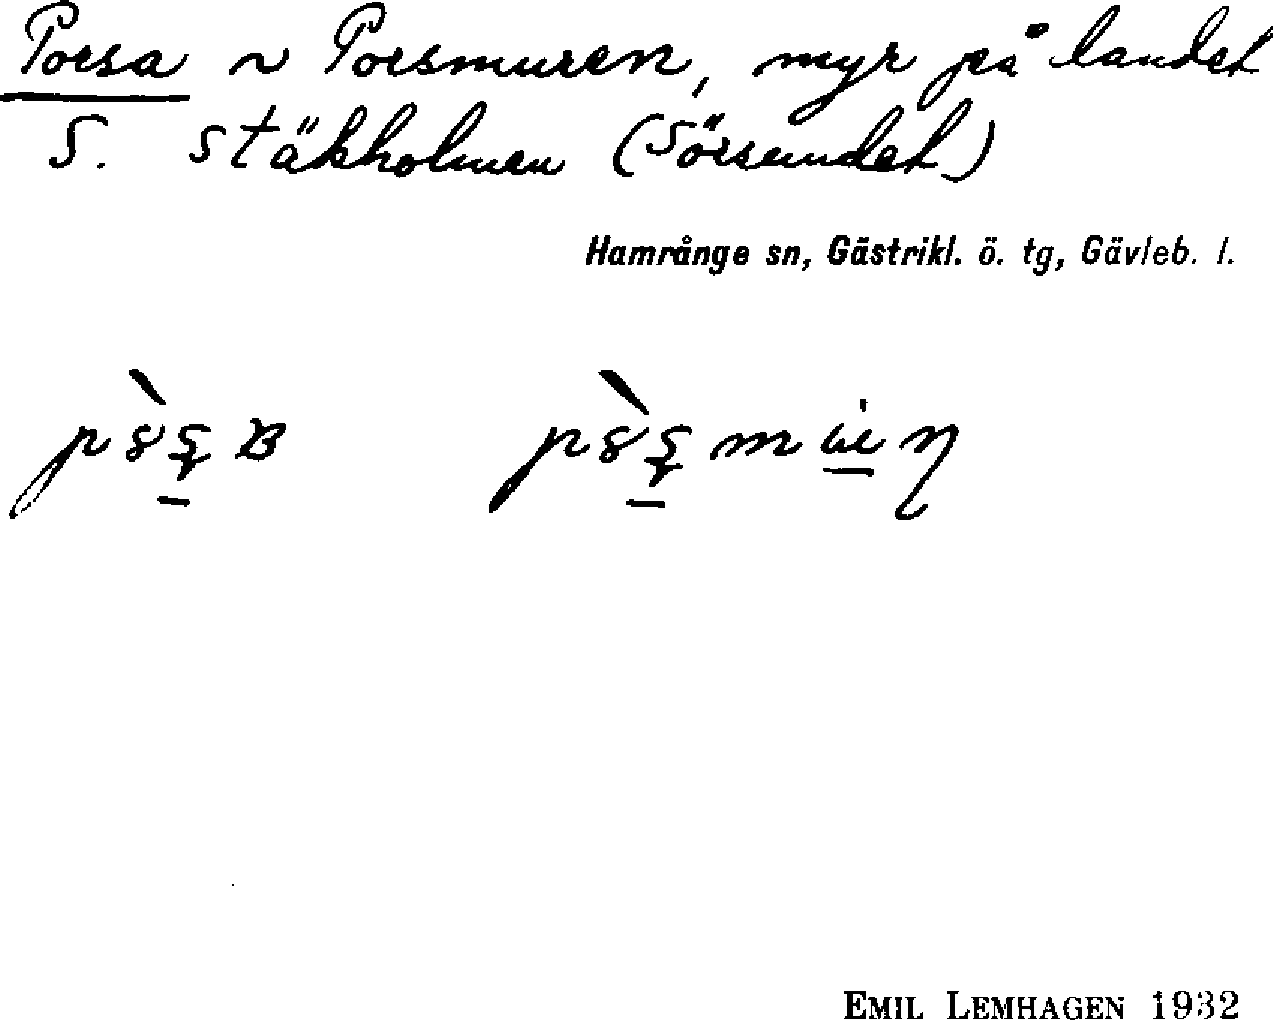 Porsa ~ Porsmuren, myr på landet
S. Stäkholmen (Sörsundet)
Hamrånge sn, Gästrikl. ö. tg, Gävleb. l.
EMIL LEMHAGEN 1932